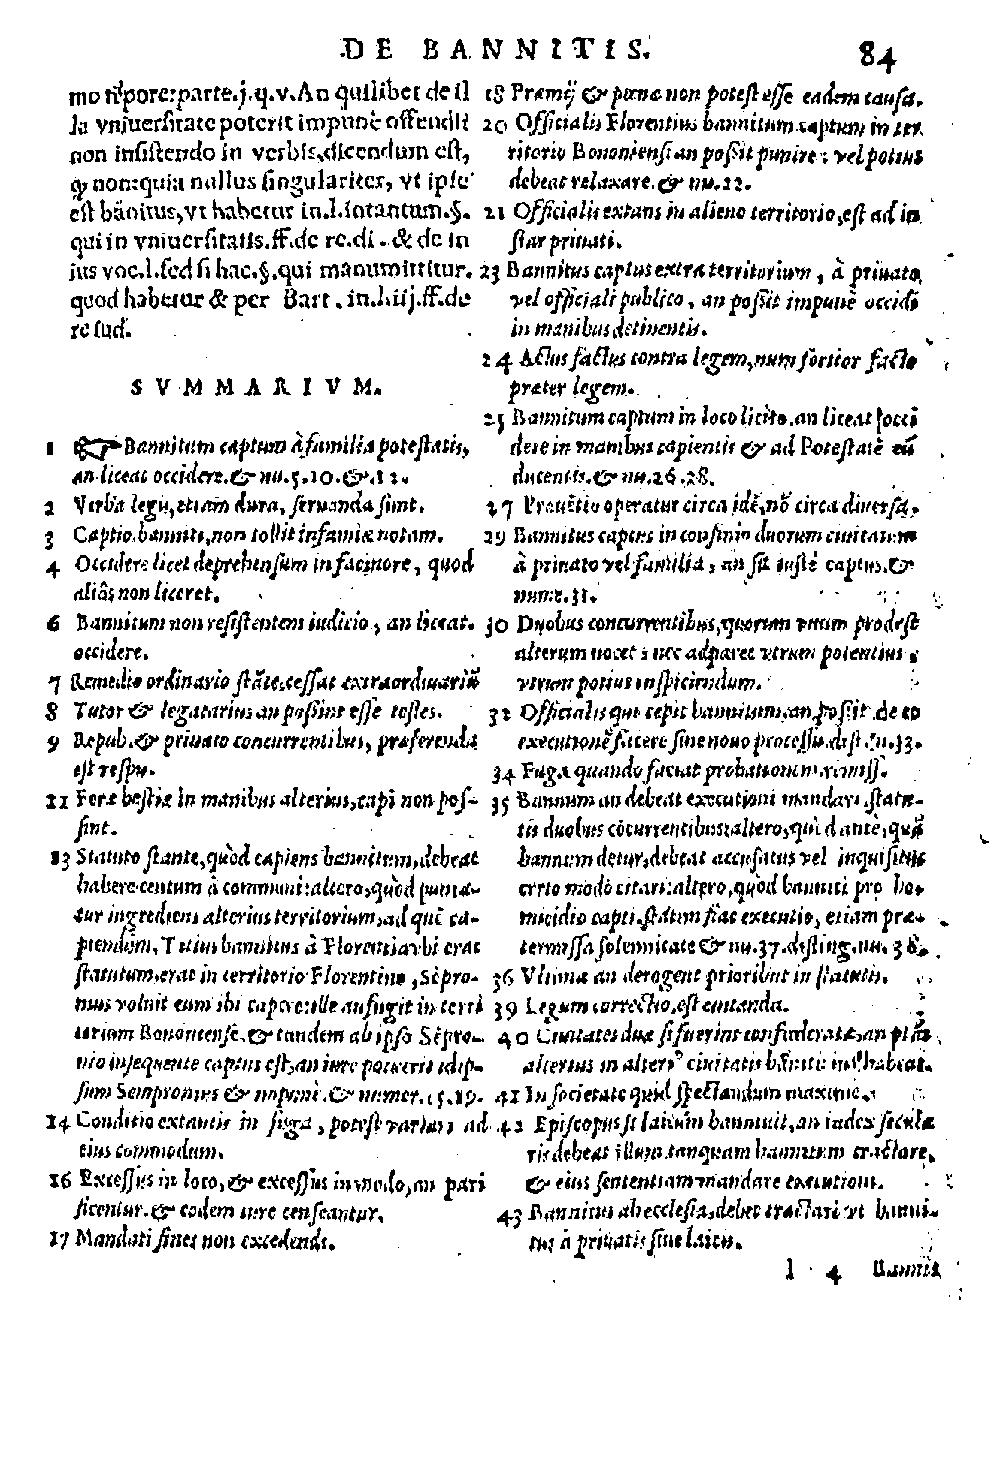 DE BANNITIS. 84
mo tꝑpore:parte.j.q.v.An quilibet de il
la vniuersitate poterit impunè offendi?
non insistendo in verbis,dicendum est,
ꝙ non:quia nullus singulariter, vt ipse
est bānitus,vt habetur in.l.sotantum.§.
qui in vniuersitatis.ff.de re.di. & de in
ius voc.l.sed si hac.§.qui manumittitur.
quod habetur & per Bart. in.l.iij.ff.de
re iud.
SVMMARIVM.
1 ☞Bannitum captum à familia potestatis,
an liceat occidere.& nu.5.10.&.12.
2 Verba legū,etiam dura, seruanda sunt.
3 Captio.banniti,non tollit infamiæ notam.
4 Occidere licet deprehensum in facinore, quod
aliâs non liceret.
6 Bannitum non resistentem iudicio, an liceat.
occidere.
7 Remedio ordinario stāte,cessat extraordinariū
8 Tutor & legatarius an possint esse testes.
9 Repub.& priuato concurrentibus, præferenda
est respu.
11 Feræ bestiæ in manibus alterius,capi non pos-
sint.
13 Statuto stante,quòd capiens bannitum,debeat
habere centum à communi:altero,quòd punia-
tur ingrediens alterius territorium,ad quē ca-
piendum, Titius bannitus à Florentia vbi erat
statutum,erat in territorio Florentino, Sēpro-
nius voluit eum ibi capere:ille aufugit in terri
torium Bononiense.& tandem ab ipso Sēpro-
nio insequente captus est,an iure poterit idip-
sum Sempronius & impunè.& numer.15.19.
14 Conditio extantis in fuga, potest variari ad
eius commodum.
16 Excessus in loco,& excessus in modo,an pari
ficentur.& eodem iure censeantur.
17 Mandati fines non excedendi.
18 Præmij & pœnæ non potest esse eadem causa.
20 Officialis Florentius bannitum captum in ter
ritorio Bononiensi an possit punire : vel potius
debeat relaxare.& nu.22.
21 Officialis extans in alieno territorio,est ad in
star priuati.
23 Bannitus captus extra territorium, à priuato
vel officiali publico, an possit impunè occidi
in manibus detinentis.
24 Actus factus contra legem,num fortior facto
præter legem.
25 Bannitum captum in loco licito.an liceat occi
dere in manibus capientis & ad Potestatē eū
ducentis.& nu.26.28.
27 Prauētio operatur circa idē,nō circa diuersa.
29 Bannitus captus in confinio duorum ciuitatum
à priuato vel familia, an sit iustè captus.&
nume.31.
30 Duobus concurrentibus,quorum vnum prodest
alterum nocet : nec adparet vtrum potentius :
vtrum potius inspiciendum.
32 Officialis qui cepit bannitum,an possit de eo
executionē facere sine nouo processu.dist.n.33.
34 Fuga quando faciat probationem
35 Bannum an debeat executioni mandari.statu-
tis duobus cōcurrentibus:altero,quòd antè,quā
bannum detur,debeat accusatus vel inquisitus
certo modo citari:altero,quòd banniti pro ho-
micidio capti.statim fiat executio, etiam præ-
termissa solennitate & nu.37.disting.nu. 38.
36 Vltima an derogent prioribus in statutis.
39 Legum correctio,est euitanda.
40 Ciuitates duæ si fuerint confœderatæ,an
alterius in alterius ciuitatis habeat.
41 In societate quid spectandum maximè.
42 Episcopus si laicum banniuit,an iudex secula
ris debeat illum tanquam bannitum tractare,
& eius sententiam mandare executioni.
43 Bannitus ab ecclesia,debet tractari vt banni-
tus à priuatis siue laicis.
l 4 Bannit⁹